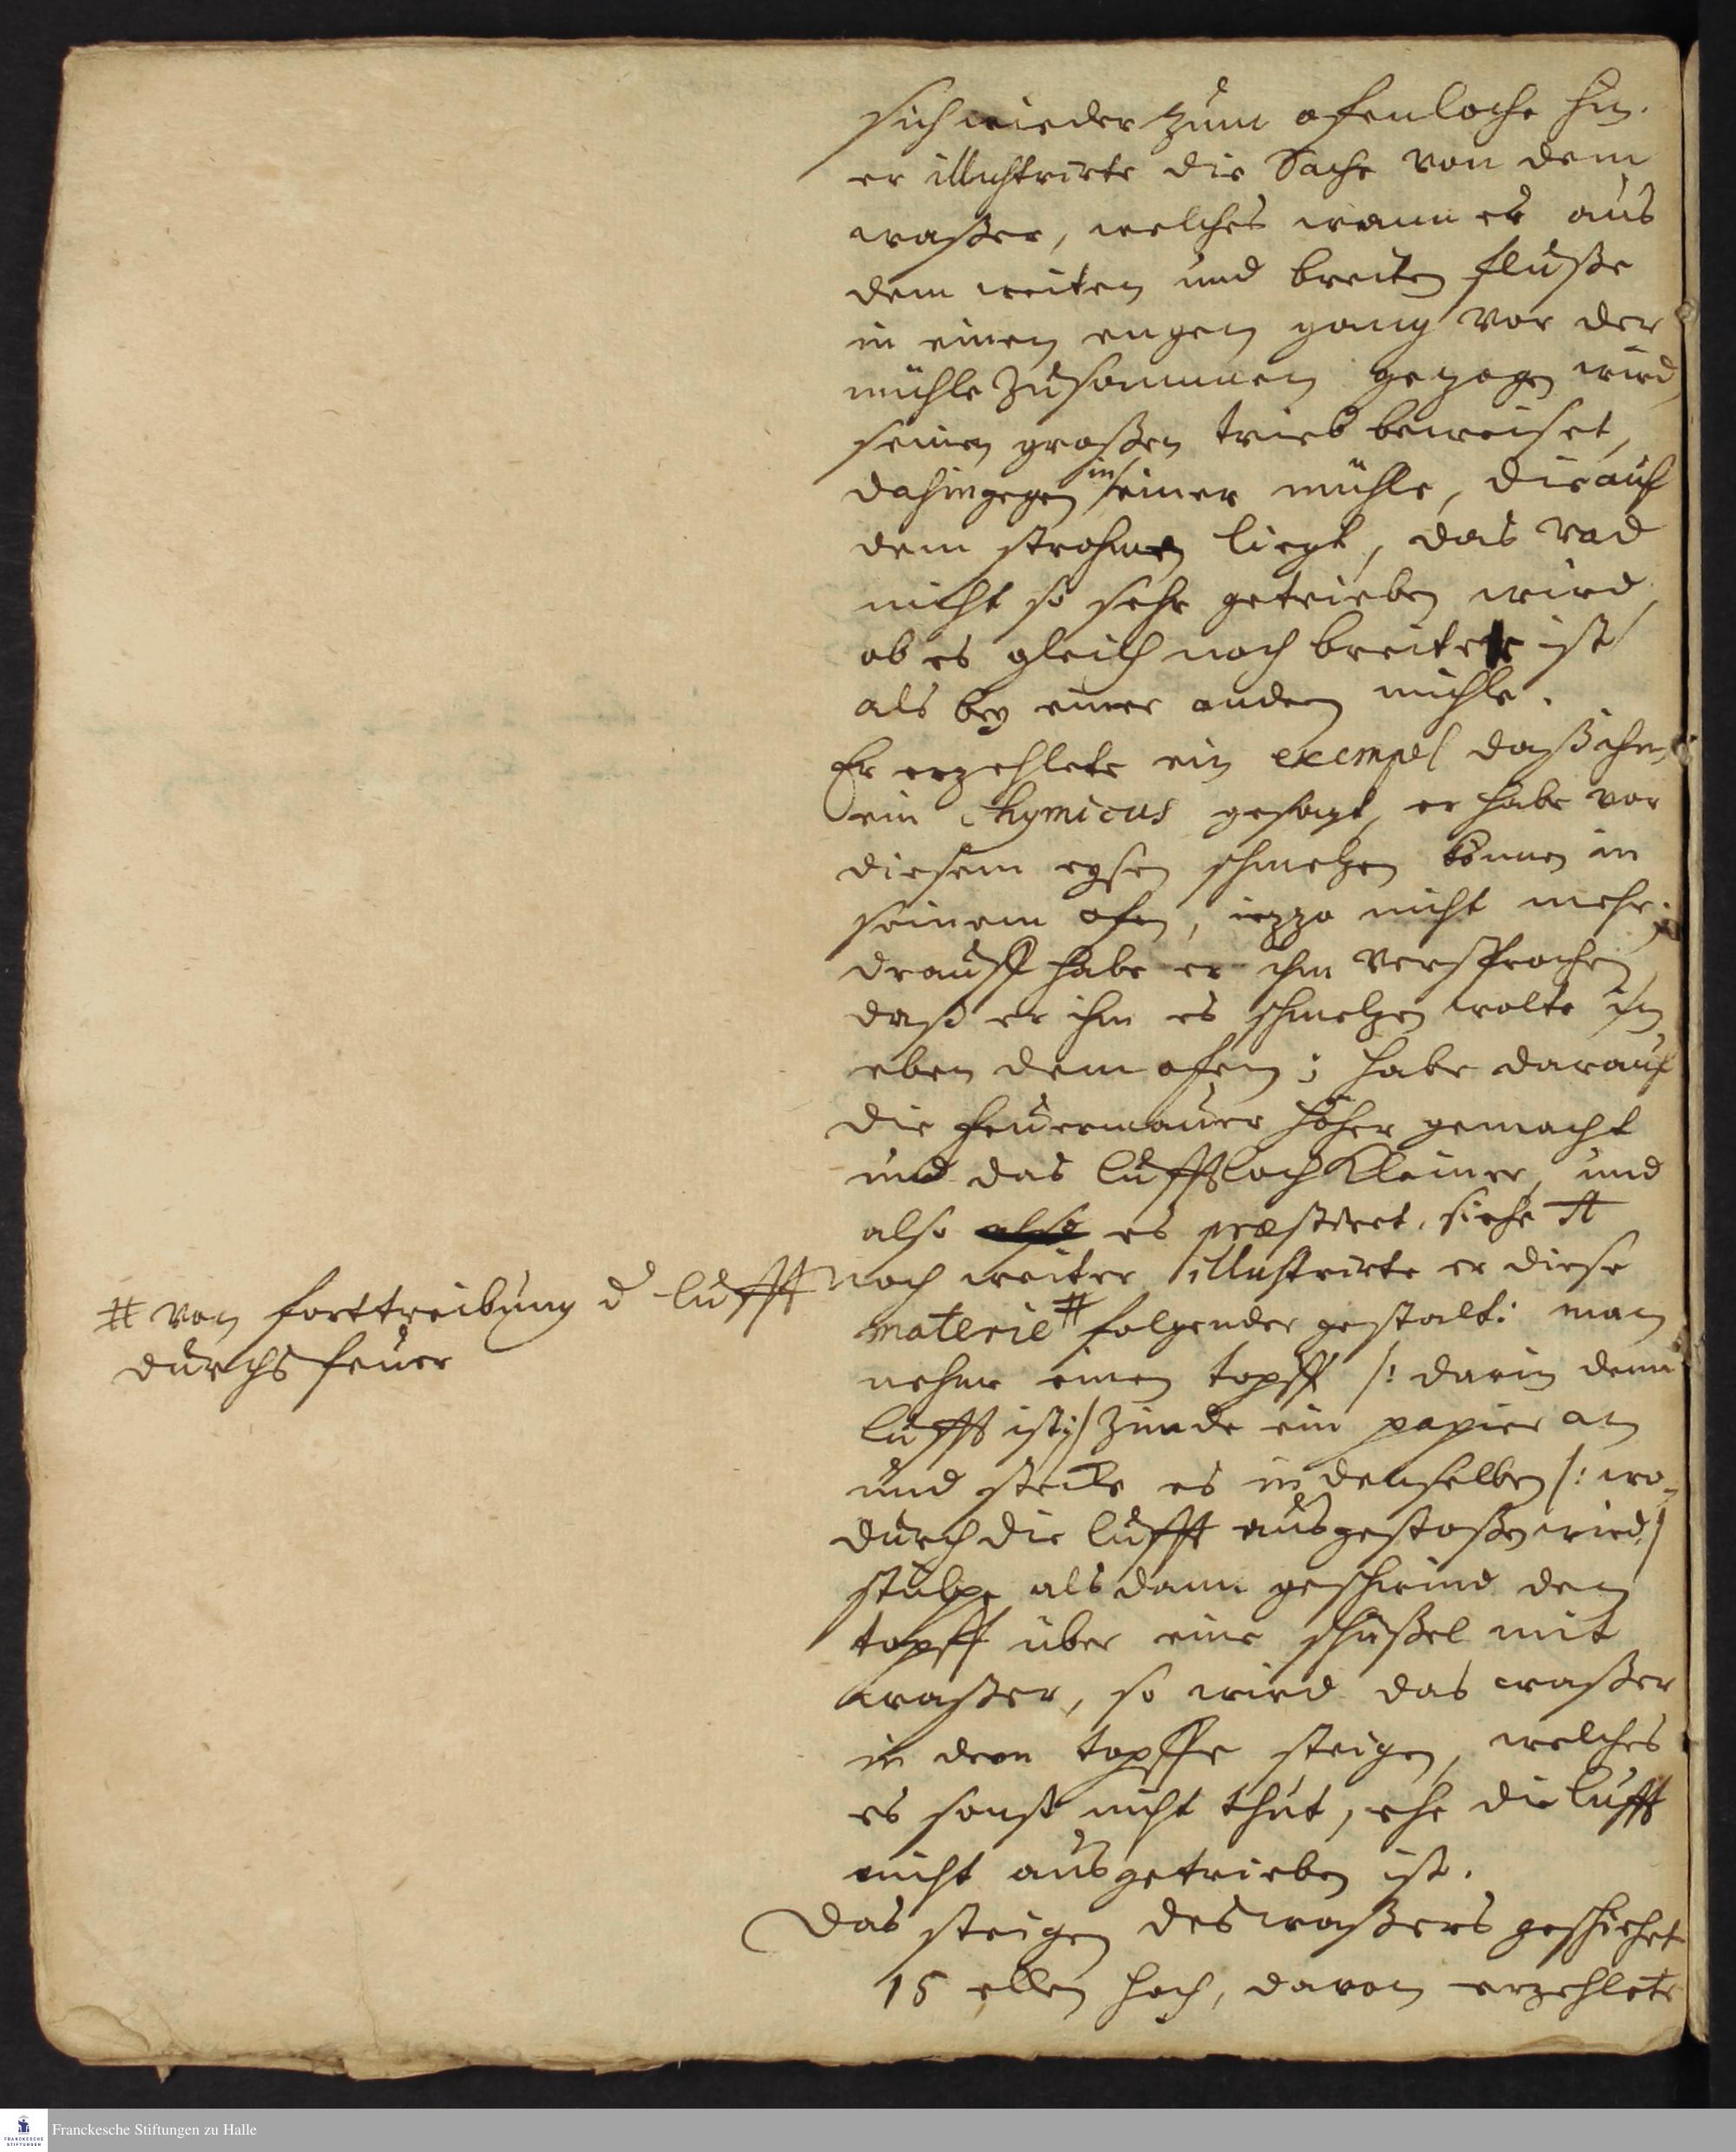 sich wieder zum ofenloche hin.
er illustrirte die Sache von dem
waßer, welches wann es aus
dem weiten und breiten fluße
in einen engen gang vor der
mühle zusammen gezogen wird,
seinen großen trieb beweiset,
dahingegen in einer mühle, die auf
dem strohmen liegt, das rad
nicht so sehr getrieben wird,
ob es gleich noch breiter ist
als bey einer andern mühle.
Er erzehlete ein exempel daß ihm
ein Chymicus gesagt, er habe vor
diesem eysen schmelzen können in
seinem ofen, iezzo nicht mehr;
drauff habe er ihm versprochen,
daß er ihm es schmelzen wolte in
eben dem ofen; habe darauf
die feuermauer höher gemacht
und das lufftloch kleiner, und
also also es præstiret. siehe
# von forttreibung d lufft
durchs feuer
noch weiter illustrirte er diese
materie # folgender gestalt: man
nehme einen topff /: darin denn
lufft ist :/ zünde ein papier an
und stecke es in denselben /: wo-
durch die lufft ausgestoßen wird :/
stülpe alsdann geschwind den
topff über eine schüßel mit
waßer, so wird das waßer
in dem topffe steigen, welches
es sonst nicht thut, ehe die lufft
nicht ausgetrieben ist.
Das steigen des waßers geschiehet
15 ellen hoch, davon erzehlete
Franckesche Stiftungen zu Halle